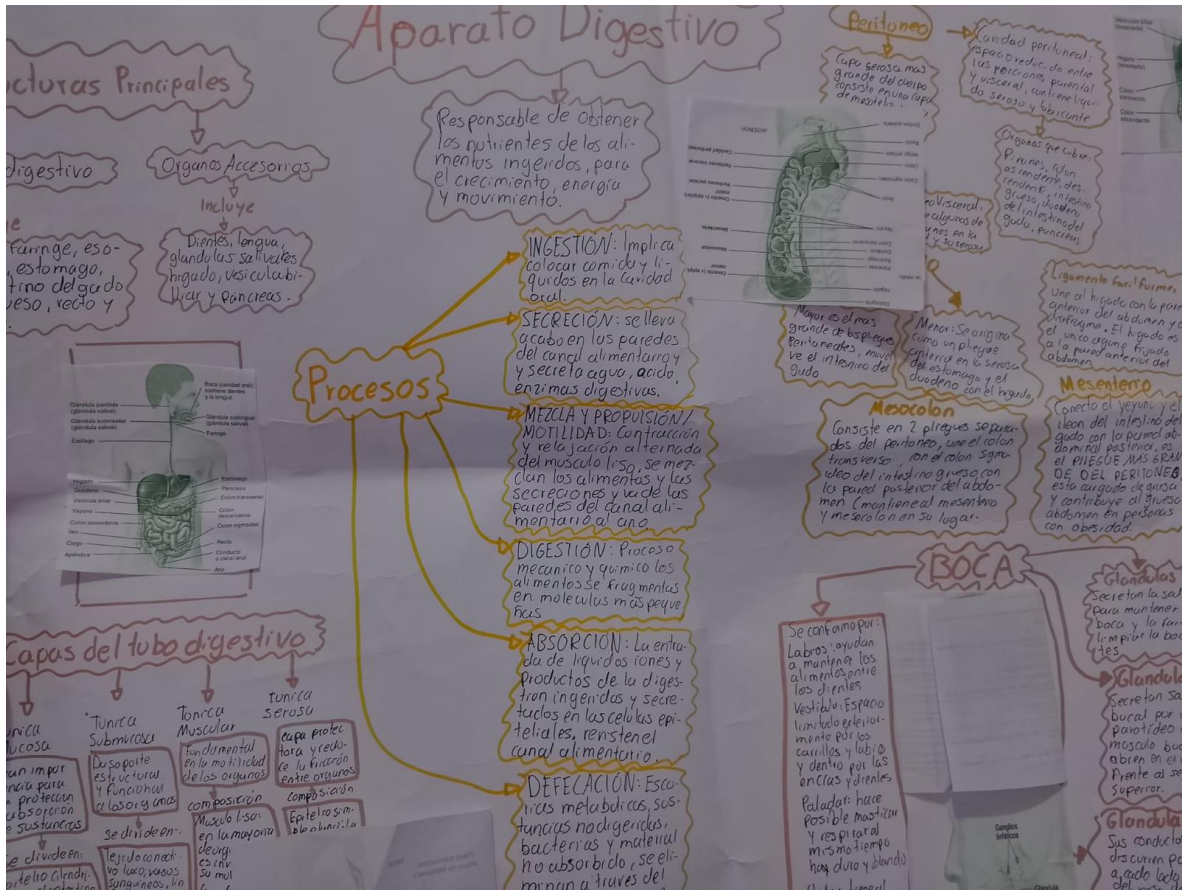 Aparato Digestivo
Responsable de obtener
los nutrientes de los ali-
mentos ingeridos, para
el crecimiento, energía
y movimiento.
Principales
digestivo
Organos Accesorios
Incluye
Dientes, lengua,
glandulas salivales
higado, vesicula bi-
liar y páncreas.
faringe, eso-
estomago,
tino delgado
recto y
Boca (cavidad oral):
contiene dientes
y la lengua
Glándula parótida
(glándula salival)
Glándula submaxilar
(glándula salival)
Glándula sublingual
(glándula salival)
Faringe
Esófago
Hígado
Duodeno
Vesícula biliar
Yeyuno
Colon ascendente
Íleo
Ciego
Apéndice
Estómago
Páncreas
Colon transverso
Colon
descendente
Colon sigmoides
Recto
Conducto
o canal anal
Ano
Procesos
INGESTIÓN: Implica
colocar comida y lí-
quidos en la cavidad
oral.
SECRECIÓN: se lleva
acabo en las paredes
del canal alimentario
y secreta agua, acido,
enzimas digestivas.
MEZCLA Y PROPULSIÓN/
MOTILIDAD: Contracción
y relajación alternada
del musculo liso, se mez-
clan los alimentos y las
secreciones y va de las
paredes del canal ali-
mentario al ano
DIGESTIÓN: Proceso
mecanico y quimico los
alimentos se fragmentas
en moleculas más peque
ñas
ABSORCIÓN: La entra-
da de liquidos iones y
productos de la diges-
tion ingeridos y secre-
tados en las celulas epi-
teliales, revisten el
canal alimentario.
DEFECACIÓN: Esco-
ricas metabolicas, sus-
tancias no digeridas,
bacterias y material
no absorbido, se eli-
minan a traves del
Capas del tubo digestivo
Tunica
Submucosa
Da soporte
estructural
y funcional
a los organos
se divide en:
Tejido conecti-
vo laxo, vasos
sanguineos, lin
Tonica
Muscular
Fundamental
en la motilidad
de los organos
composición
Musculo liso
en la mayoria
tunica
serosa
capa protec
tora y redu-
ce la fricción
entre organos
composición
Epitelio sim-
Peritoneo
Capa serosa mas
grande del cuerpo
consiste en una capa
de mesotelio
Cavidad peritoneal:
espacio reducido entre
las porciones parental
y visceral, contiene liqui-
do seroso y lubricante
Organos que cubre:
Riñones, colon
ascendente, des-
cendente, intestino
grueso, duodeno
del intestino del
gado, pancreas
Mayor es el mas
grande de los pliegues
peritoneales, envuel
ve el intestino del
gudo
Menor: Se origina
como un pliegue
anterior en la serosa
del estomago y el
duodeno con el higado,
Ligamento Falciforme:
Une al higado con la pared
anterior del abdomen y
diafragma. El higado es
el unico organo fijado
a la pared anterior del
abdomen
Mesocolon
Consiste en 2 pliegues separa-
dos del peritoneo, une el colon
transverso, con el colon sigmo-
ideo del intestino grueso con
la pared posterior del abdo-
men (mantiene al mesenterio
y mesocolon en su lugar.
Mesenterio
Conecta el yeyuno y el
ileon del intestino del
gado con la pared ab-
dominal posterior, es
el PLIEGUE MAS GRAN
DE DEL PERITONEO,
esta cargado de grasa
y contribuye al grueso
abdomen en personas
con obesidad.
BOCA
Se confamo por:
Labios: ayudan
a mantener los
alimentos entre
los dientes
Vestibulo: Espacio
limitado exterior-
mente por los
carrillos y labios
y dentro por las
encias y dientes
Paladar: hace
posible masticar
y respirar al
mismo tiempo
hay duro y blando
Ganglios
linfáticos
Glandulas
Secretan la sal
para mantener
boca y la
limpiar la boca
tes
Secretan
bucal por
parotideo
musculo
abren en el
frente al se
superior.
Glandula
Sus conducto
discurren